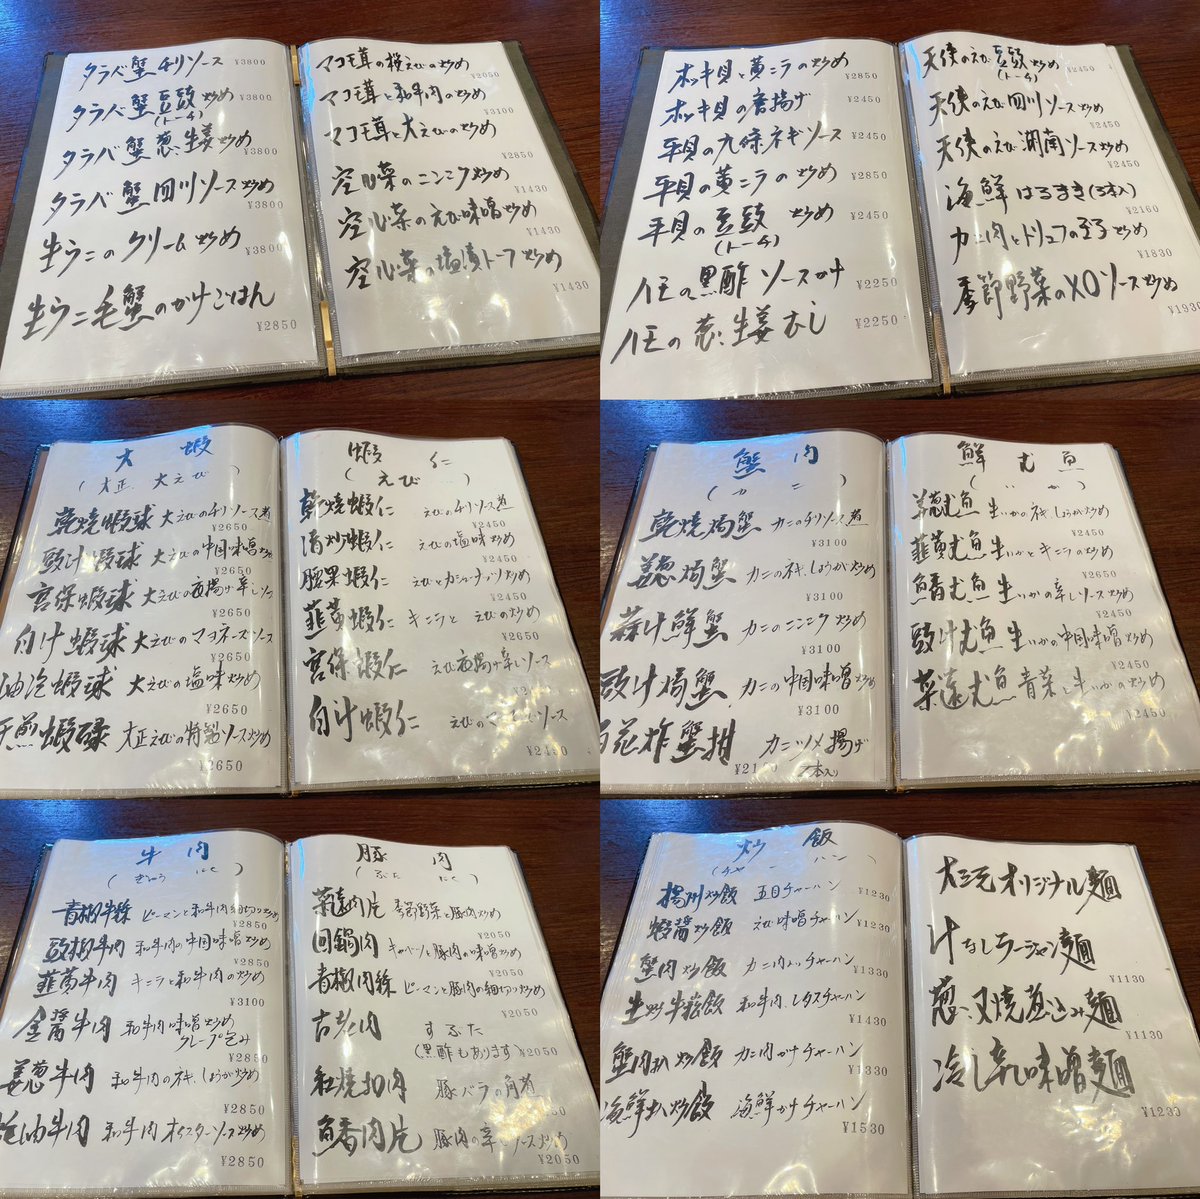 タラバ蟹チリソース ¥3800
タラバ蟹豆豉炒め ¥3800
(トーチ)
タラバ蟹葱生姜炒め ¥3800
タラバ蟹四川ソース炒め ¥3800
生ウニのクリーム炒め ¥3800
生ウニ毛蟹のかけごはん ¥2850
マコモ茸の桜えびの炒め ¥2050
マコモ茸と和牛肉の炒め ¥3100
マコモ茸と大えびの炒め ¥2850
空心菜のニンニク炒め ¥1430
空心菜のえび味噌炒め ¥1430
空心菜の塩漬トーフ炒め ¥1430
ホッキ貝と黄ニラの炒め ¥2850
ホッキ貝の唐揚げ ¥2450
平貝の九條ネギソース ¥2450
平貝の黄ニラの炒め ¥2850
平貝の豆豉炒め ¥2450
(トーチ)
の黒酢ソースかけ ¥2250
の葱生姜むし ¥2250
天使のえび豆豉炒め ¥2450
(トーチ)
天使のえび四川ソース炒め ¥2450
天使のえび湖南ソース炒め ¥2450
海鮮はるまき(3本入) ¥2160
カニ肉とトリュフの玉子炒め ¥1830
季節野菜のXOソース炒め ¥1930
大蝦
(大正、大えび)
乾焼蝦球 大えびのチリソース煮 ¥2650
豉汁蝦球 大えびの中国味噌炒め ¥2650
宮保蝦球 大えびの夜揚げ辛しソース ¥2650
白汁蝦球 大えびのマヨネーズソース ¥2650
油泡蝦球 大えびの塩味炒め ¥2650
干煎蝦碌 大正えびの特製ソース炒め ¥2650
蝦仁
(えび)
乾焼蝦仁 えびのチリソース煮 ¥2450
清炒蝦仁 えびの塩味炒め ¥2450
腰果蝦仁 えびとカシューナッツ炒め ¥2450
韮黄蝦仁 キニラとえびの炒め ¥2650
宮保蝦仁 えび夜揚げ辛しソース
白汁蝦仁 えびのマヨネーズソース ¥2450
蟹肉
(カニ)
乾焼焗蟹 カニのチリソース煮 ¥3100
姜葱焗蟹 カニのネギ、しょうが炒め ¥3100
蒜汁鮮蟹 カニのニンニク炒め ¥3100
豉汁焗蟹 カニの中国味噌炒め ¥3100
百花炸蟹拑 カニツメ揚げ
鮮尤魚
(いか)
姜葱尤魚 生いかのネギ、しょうが炒め ¥2450
韮黄尤魚 生いかとキニラの炒め ¥2650
魚香尤魚 生いかの辛しソース炒め ¥2450
豉汁尤魚 生いかの中国味噌炒め ¥2450
菜遠尤魚 青菜と生いかの炒め ¥2450
牛肉
(ぎゅうにく)
青椒牛絲 ピーマンと和牛肉細切り炒め ¥2850
豉椒牛肉 和牛肉の中国味噌炒め ¥2850
韮黄牛肉 キニラと和牛肉の炒め ¥3100
金醤牛肉 和牛肉味噌炒め
クレープ包み ¥2850
姜葱牛肉 和牛肉のネギ、しょうが炒め ¥2850
蠔油牛肉 和牛肉オイスターソース炒め ¥2850
豚肉
(ぶたにく)
菜遠肉片 季節野菜と豚肉炒め ¥2050
回鍋肉 キャベツと豚肉の味噌炒め ¥2050
青椒肉絲 ピーマンと豚肉の細切り炒め ¥2050
古老肉 すぶた
(黒酢もあります) ¥2050
紅焼扣肉 豚バラの角煮
魚香肉片 豚肉の辛しソース炒め ¥2050
炒飯
(チャーハン)
揚州炒飯 五目チャーハン ¥1230
蝦醤炒飯 えび味噌チャーハン ¥1230
蟹肉炒飯 カニ肉入りチャーハン ¥1330
生炒牛菘飯 和牛肉レタスチャーハン ¥1430
蟹肉扒炒飯 カニ肉かけチャーハン ¥1330
海鮮扒炒飯 海鮮かけチャーハン ¥1530
大三元オリジナル麺
汁なしラージャン麺 ¥1130
葱叉焼煮込み麺 ¥1130
冷し辛し味噌麺 ¥1230